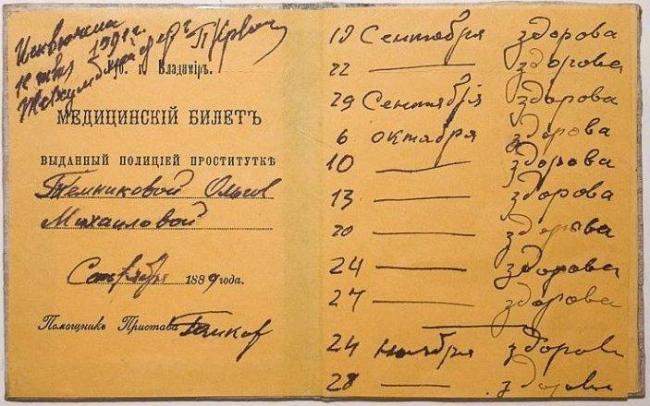 Исключена
1891 г.
Губ. г. Владиміръ.
МЕДИЦИНСКІЙ БИЛЕТЪ
ВЫДАННЫЙ ПОЛИЦІЕЙ ПРОСТИТУТКѢ
Темниковой Ольгѣ
Михаиловой
Сентября 1889 года.
Помощникъ Пристава
19 Сентября здорова
22 — здорова
29 Сентября здорова
6 октября здорова
10 — здорова
13 — здорова
20 — здорова
24 — здорова
27 — здорова
24 ноября здорова
28 — здорова